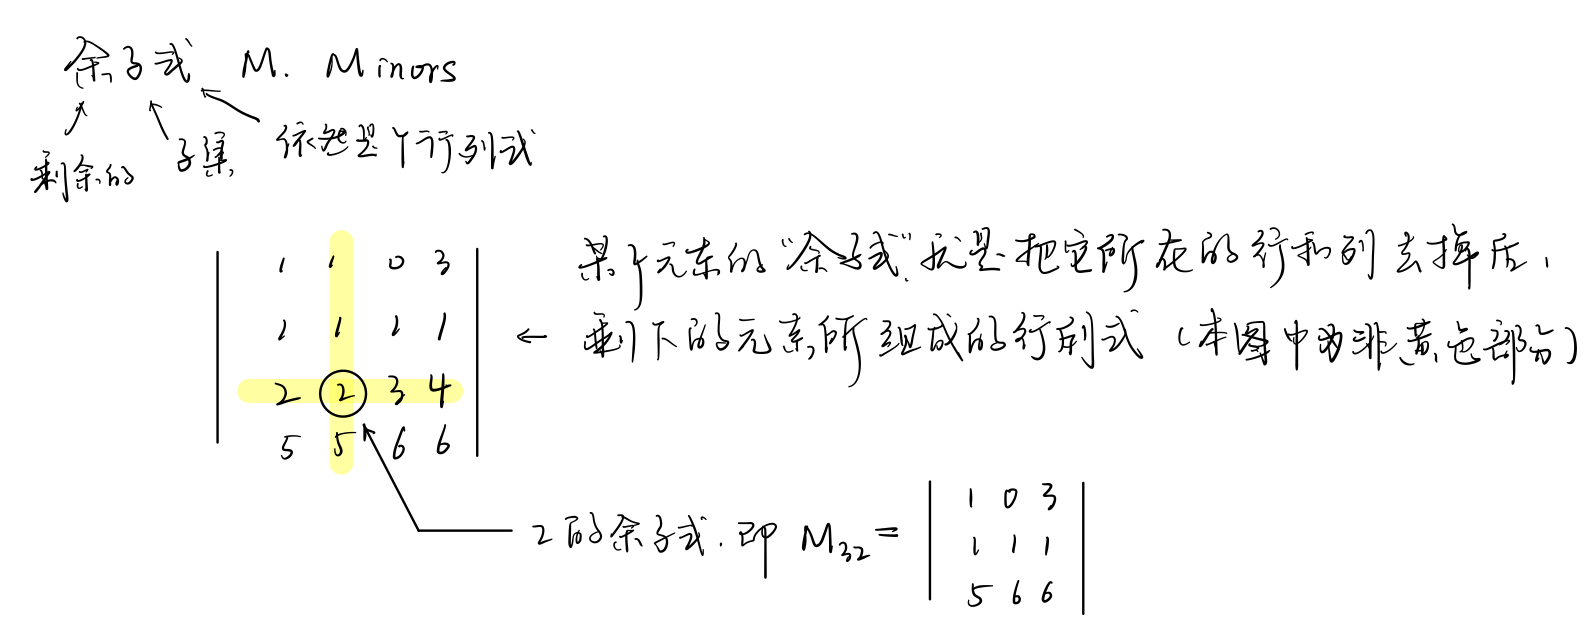 余子式 M. Minors
剩余的 子集 依然是个行列式
1 1 0 3
1 1 1 1
2 2 3 4
5 5 6 6
某个元素的“余子式”就是把它所在的行和列去掉后,
← 剩下的元素所组成的行列式 (本图中为非黄色部分)
2的余子式.即 M32 =
1 0 3
1 1 1
5 6 6